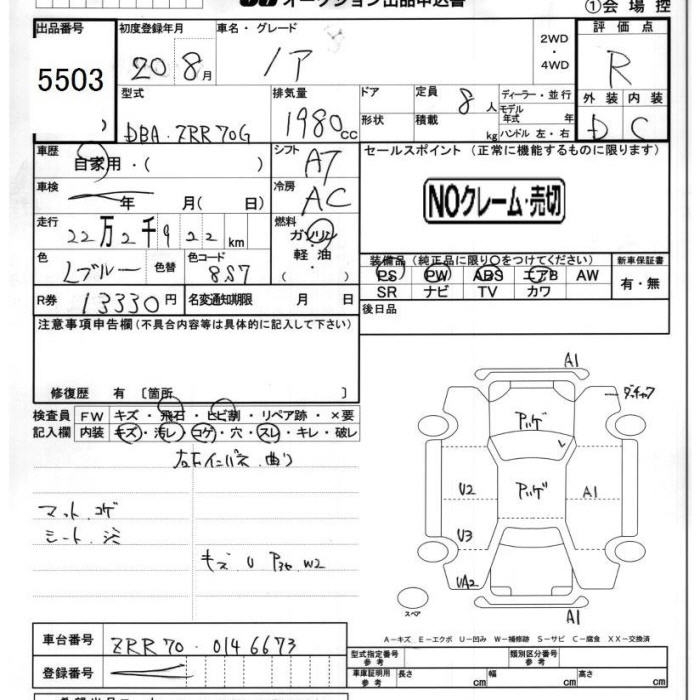 オークション出品申込書 ①会場控
出品番号 初度登録年月 車名・グレード 2WD・4WD 評価点
5503 20 8月 ノア R
型式 排気量 ドア 定員 8人 ディーラー・並行 外装 内装
DBA・ZRR70G 1980cc 形状 積載 kg モデル年式 年 ハンドル 左・右 D C
車歴 自家用・( ) シフト AT セールスポイント (正常に機能するものに限ります)
車検 年 月( 日) 冷房 AC NOクレーム・売切
走行 22万2千922km 燃料 ガソリン・軽油・
色 Lブルー 色替 色コード 8S7 装備品 (純正品に限り○をつけてください) 新車保証書
PS PW ABS エアB AW 有・無
SR ナビ TV カワ
R券 13330円 名変通知期限 月 日 後日品
注意事項申告欄(不具合内容等は具体的に記入して下さい)
修復歴 有 〔箇所 〕
検査員 FW キズ・飛石・ヒビ割・リペア跡・×要
記入欄 内装 キズ・汚レ・コゲ・穴・スレ・キレ・破レ
A1
アハゲ
U2 アハゲ A1
マット.コゲ
シート.汚
U3
キズ U P36 W2
UA2
スペア A1
A-キズ E-エクボ U-凹み W-補修跡 S-サビ C-腐食 XX-交換済
車台番号 ZRR70-0146673 型式指定番号 参考 類別区分番号 参考
登録番号 車庫証明用 参考 長さ cm 幅 cm 高さ cm